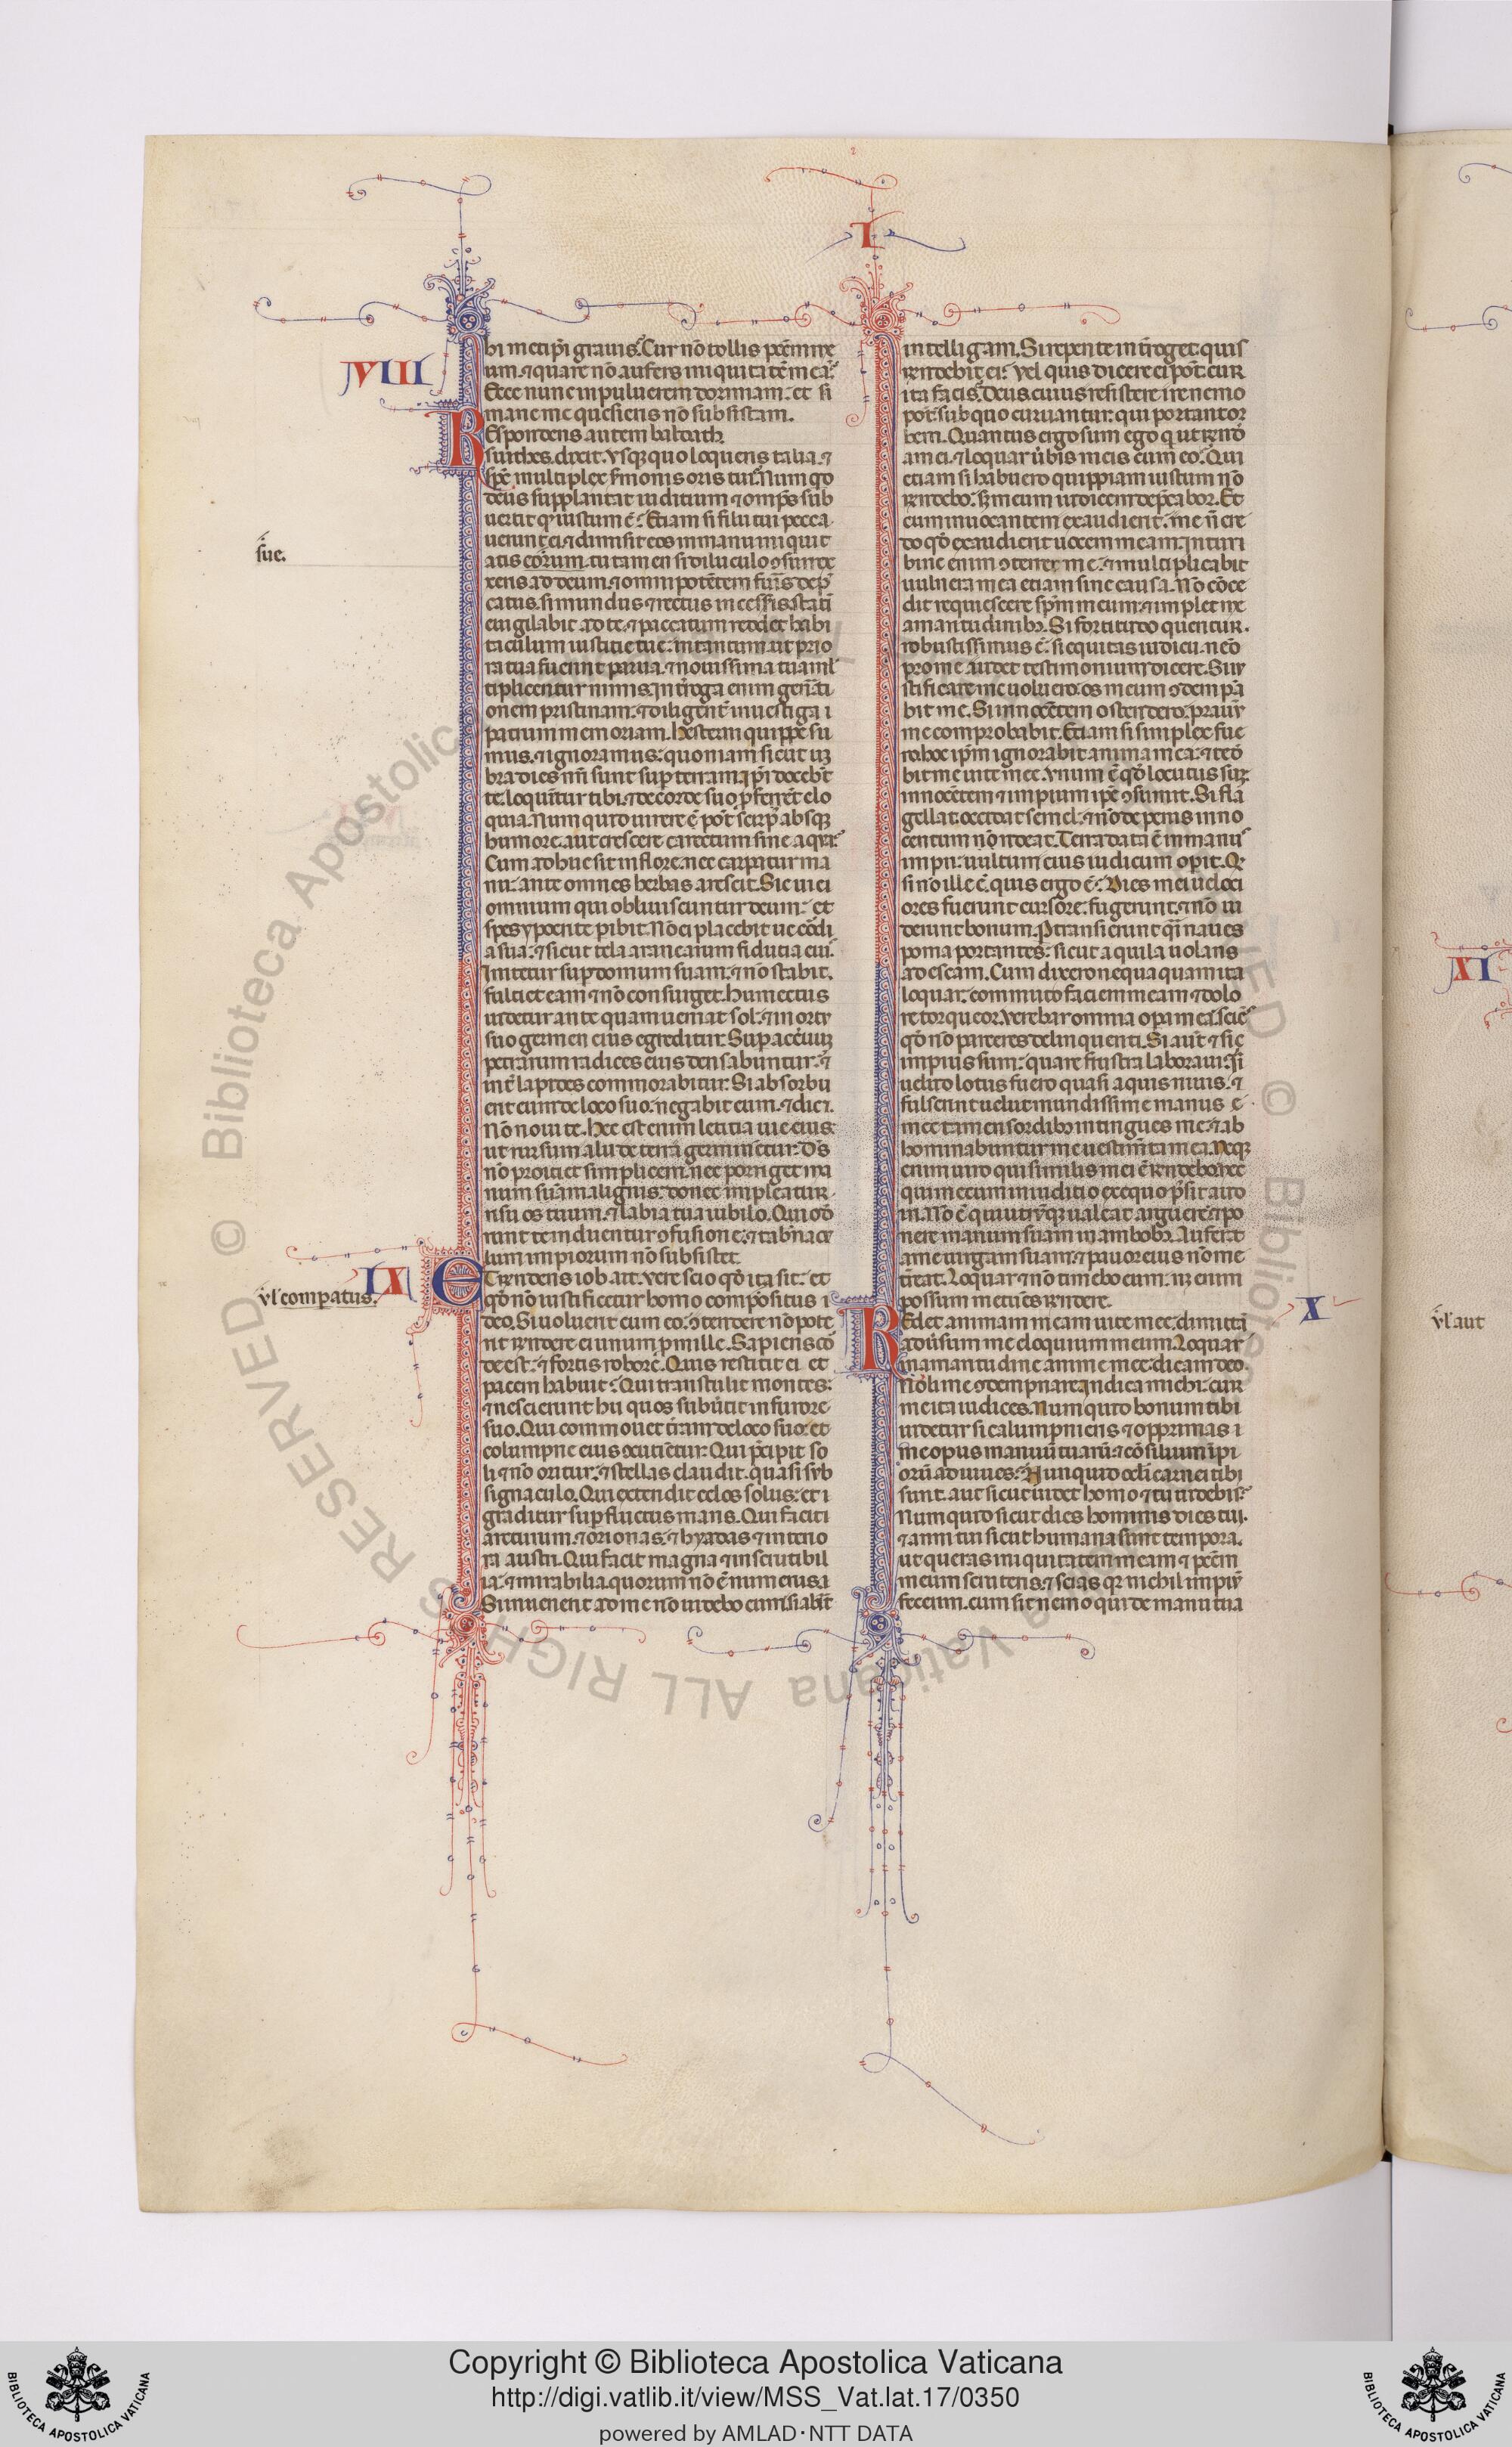 I
VIII
bi metip̃i grauis. Cur nõ tollis pctm̃ me
um. ⁊ quare nõ aufers iniquitatẽ meã.
Ecce nunc in puluerem dormiam. et si
mane me quesieris nõ subsistam.
Respondens autem baldath
suithes. dixit. Vsq; quo loqueris talia. ⁊
sp̃s multiplex sermonis oris tui. Num qd
deus supplantat iuditium ⁊ omps̃ sub
uertit qd̃ iustum ẽ. Etiam si filii tui pecca
uerunt ei. ⁊ dimisit eos in manu iniquit
sue.
atis eorum. tu tamen si diluculo ɔsurrex
xeris ad deum. ⁊ omnipotẽtem fũis dep̃
catus. si mundus ⁊ rectus incessis. statĩ
euigilabit ad te. ⁊ paccatum reddet habi
taculum iustitie tue. in tantum ut prio
ra tua fuerint parua. ⁊ nouissima tua ml̃
tiplicentur nimis. Int̃roga enim gen̄ati
onem pristinam. ⁊ diligent̃ inuestiga i
patrum memoriam. Hesterni quippe su
mus. ⁊ ignoramus. quoniam sicut uz
bra dies nr̃i sunt sup terram. ⁊ ip̃i docebt̃
te. loquntur tibi. ⁊ de corde suo p̃ferrẽt elo
quia. Numquid uirere ẽ pot̃ scirp̃ absq;
humore. aut crescere carectum sine aqua.
Cum adhuc sit in flore. nec carpatur ma
nu. ante omnes herbas arescit. Sic uie i
omnium qui obliuiscuntur deum. et
spes ypocrite pibit. Nõ ei placebit uecõdi
a sua. ⁊ sicut tela aranearum fidutia eiu.
Innitetur sup domum suam. ⁊ nõ stabit.
fulciet eam ⁊ nõ consurget. Humectus
uidetur ante quam ueniat sol. ⁊ in ortu
suo germen eius egreditur. Sup aceruuz
petrarum radices eius densabuntur. ⁊
int̃ lapides commorabitur. Si absorbu
erit eum de loco suo. negabit eum. ⁊ dicet.
Nõ noui te. Hec est enim letitia uie eius.
ut rursum alii de terra germinẽtur. Ds̃
nõ proiciet simplicem. nec porriget ma
num suam malignis. donec impleatur
risu os tuum. ⁊ labia tua iubilo. Qui od
runt te induentur ɔfusione. ⁊ tabñacu
lum impiorum nõ subsistet.
IX
Et rñdens iob ait. vere scio qd̃ ita sit. et
vl̃ compatus.
qd̃ nõ iustificetur homo compositus i
deo. Si uoluerit cum eo. ɔtendere nõ pote
rit rñdere ei unum p mille. Sapiens cor
de est. ⁊ fortis robore. Quis restitit ei et
pacem habuit. Qui transtulit montes.
⁊ nescierunt hii quos subũtit in furore
suo. Qui commouet t̃ram de loco suo. et
columpne eius ɔcutietur. Qui p̃cipit so
li ⁊ nõ oritur. ⁊ stellas claudit. quasi sub
signaculo. Qui extendit celos solus. et i
graditur sup fluctus maris. Qui facit i
arcturum. ⁊ orionas. ⁊ hyadas ⁊ interio
ra austri. Qui facit magna ⁊ inscrutibil
ia. ⁊ mirabilia. quorum nõ ẽ numerus. i
Si uenerit ad me nõ uidebo eum. si abit̃
intelligam. Si repente int̃roget. quis
rñdebit ei. Vel quis dicere ei pot̃. cur
ita facis. Deus cuius resistere ire nemo
pot̃. sub quo curuantur. qui portant or
bem. Quantus ergo sum ego q ut rñdõ
am ei. ⁊ loquar ũbis meis cum eo. Qui
etiam si habuero quippiam iustum nõ
rñdebo. sz meum iudicem dep̃cabor. Et
cum inuocantem exaudierit. me ñ cre
do qd̃ exaudierit uocem meam. In turi
bine enim ɔteret me. ⁊ multiplicabit
uulnera mea etiam sine causa. Nõ cõce
dit requiescere spm̃ meum. ⁊ implet me
amaritudinib;. Si fortitudo queritur.
robustissimus ẽ. si equitas iudicii. neõ
pro me audet testimonium dicere. Si iu
stificare me uoluero. os meum ɔdempã
bit me. Si innocẽtem ostendero. prauũ
me comprobabit. Etiam si simplex fue
ro. hoc ip̃m ignorabit anima mea. ⁊ tedẽ
bit me uite mee. Vnum ẽ qd̃ locutus suz
innocẽtem ⁊ impium ip̃e ɔsumit. Si fla
gellat. occidat semel. ⁊ nõ de penis inno
centum nõ rideat. Terra data ẽ in manu
impii. uultum eius iudicum opit. Qd̃
si nõ ille ẽ. quis ergo ẽ. Dies mei ueloci
ores fuerunt cursore. fugerunt. ⁊ nõ ui
derunt bonum. Ptransierunt q̃i naues
poma portantes. sicut aquila uolans
ad escam. Cum dixero nequaquam ita
loquar. commuto faciem meam. ⁊ dolo
re torqueor. verebar omnia opa mea. sciẽs
qd̃ nõ parceres delinquenti. Si aut̃ ⁊ sic
impius sum. quare frustra laboraui. Si
uelud lotus fuero quasi aquis niuis. ⁊
fulserint uelut mundissime manus e
mee tamen sordib; intingues me. ⁊ ab
hominabuntur me uestimta mea. Neq;
enim uiro qui similis mei ẽ rñdebo. nec
qui mecum in iuditio exequo p̃sit audi
ri. Nõ ẽ qui utrũq; ualeat arguere. ⁊ po
nere manum suam in ambob;. Auferat
a me uirgam suam. ⁊ pauor eius nõ me
tr̃eat. Loquar ⁊ nõ timebo eum. nz enim
possum metuẽs rñdere.
X
Tedet animam meam uite mee. dimittã
aduũsum me eloquium meum. Loquar
in amaritudine anime mee. dicam deo.
Noli me ɔdempnare. Indica michi. cur
me ita iudices. Numquid bonum tibi
uidetur si calumpnieris ⁊ opprimas i
me opus manuũ tuarũ. ⁊ cõsilium ipi
orũ adiuues. Nunquid oculi carnei tibi
sunt. aut sicut uidet homo ⁊ tu uidebis.
Numquid sicut dies hominis dies tui.
⁊ anni tui sicut humana sunt tempora.
ut queras iniquitatem meam ⁊ pctm̃
meum scruteris. ⁊ scias qz nichil impiũ
fecerim. cum sit nemo qui de manu tua
XI
vl̃ aut
© Biblioteca Apostolica Vaticana ALL RIGHTS RESERVED
Copyright © Biblioteca Apostolica Vaticana
http://digi.vatlib.it/view/MSS_Vat.lat.17/0350
powered by AMLAD·NTT DATA
BIBLIOTECA APOSTOLICA VATICANA
BIBLIOTECA APOSTOLICA VATICANA